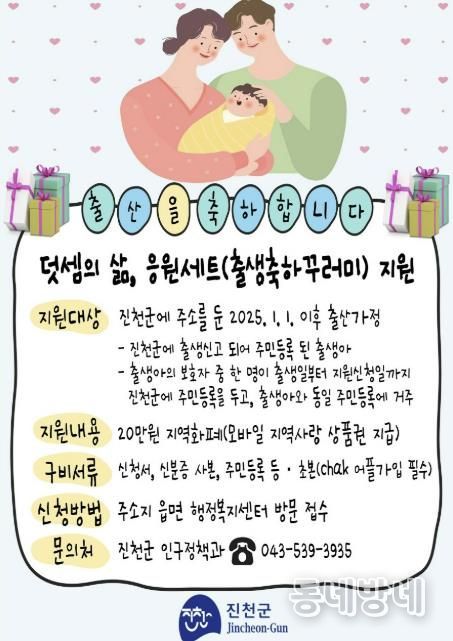 출산을 축하합니다
덧셈의 삶, 응원세트(출생축하꾸러미) 지원
지원대상 진천군에 주소를 둔 2025. 1. 1. 이후 출산가정
- 진천군에 출생신고 되어 주민등록 된 출생아
- 출생아의 보호자 중 한 명이 출생일부터 지원신청일까지
진천군에 주민등록을 두고, 출생아와 동일 주민등록에 거주
지원내용 20만원 지역화폐(모바일 지역사랑 상품권 지급)
구비서류 신청서, 신분증 사본, 주민등록 등·초본(chak 어플가입 필수)
신청방법 주소지 읍면 행정복지센터 방문 접수
문의처 진천군 인구정책과 ☎ 043-539-3935
진천군
Jincheon-Gun
동네방네